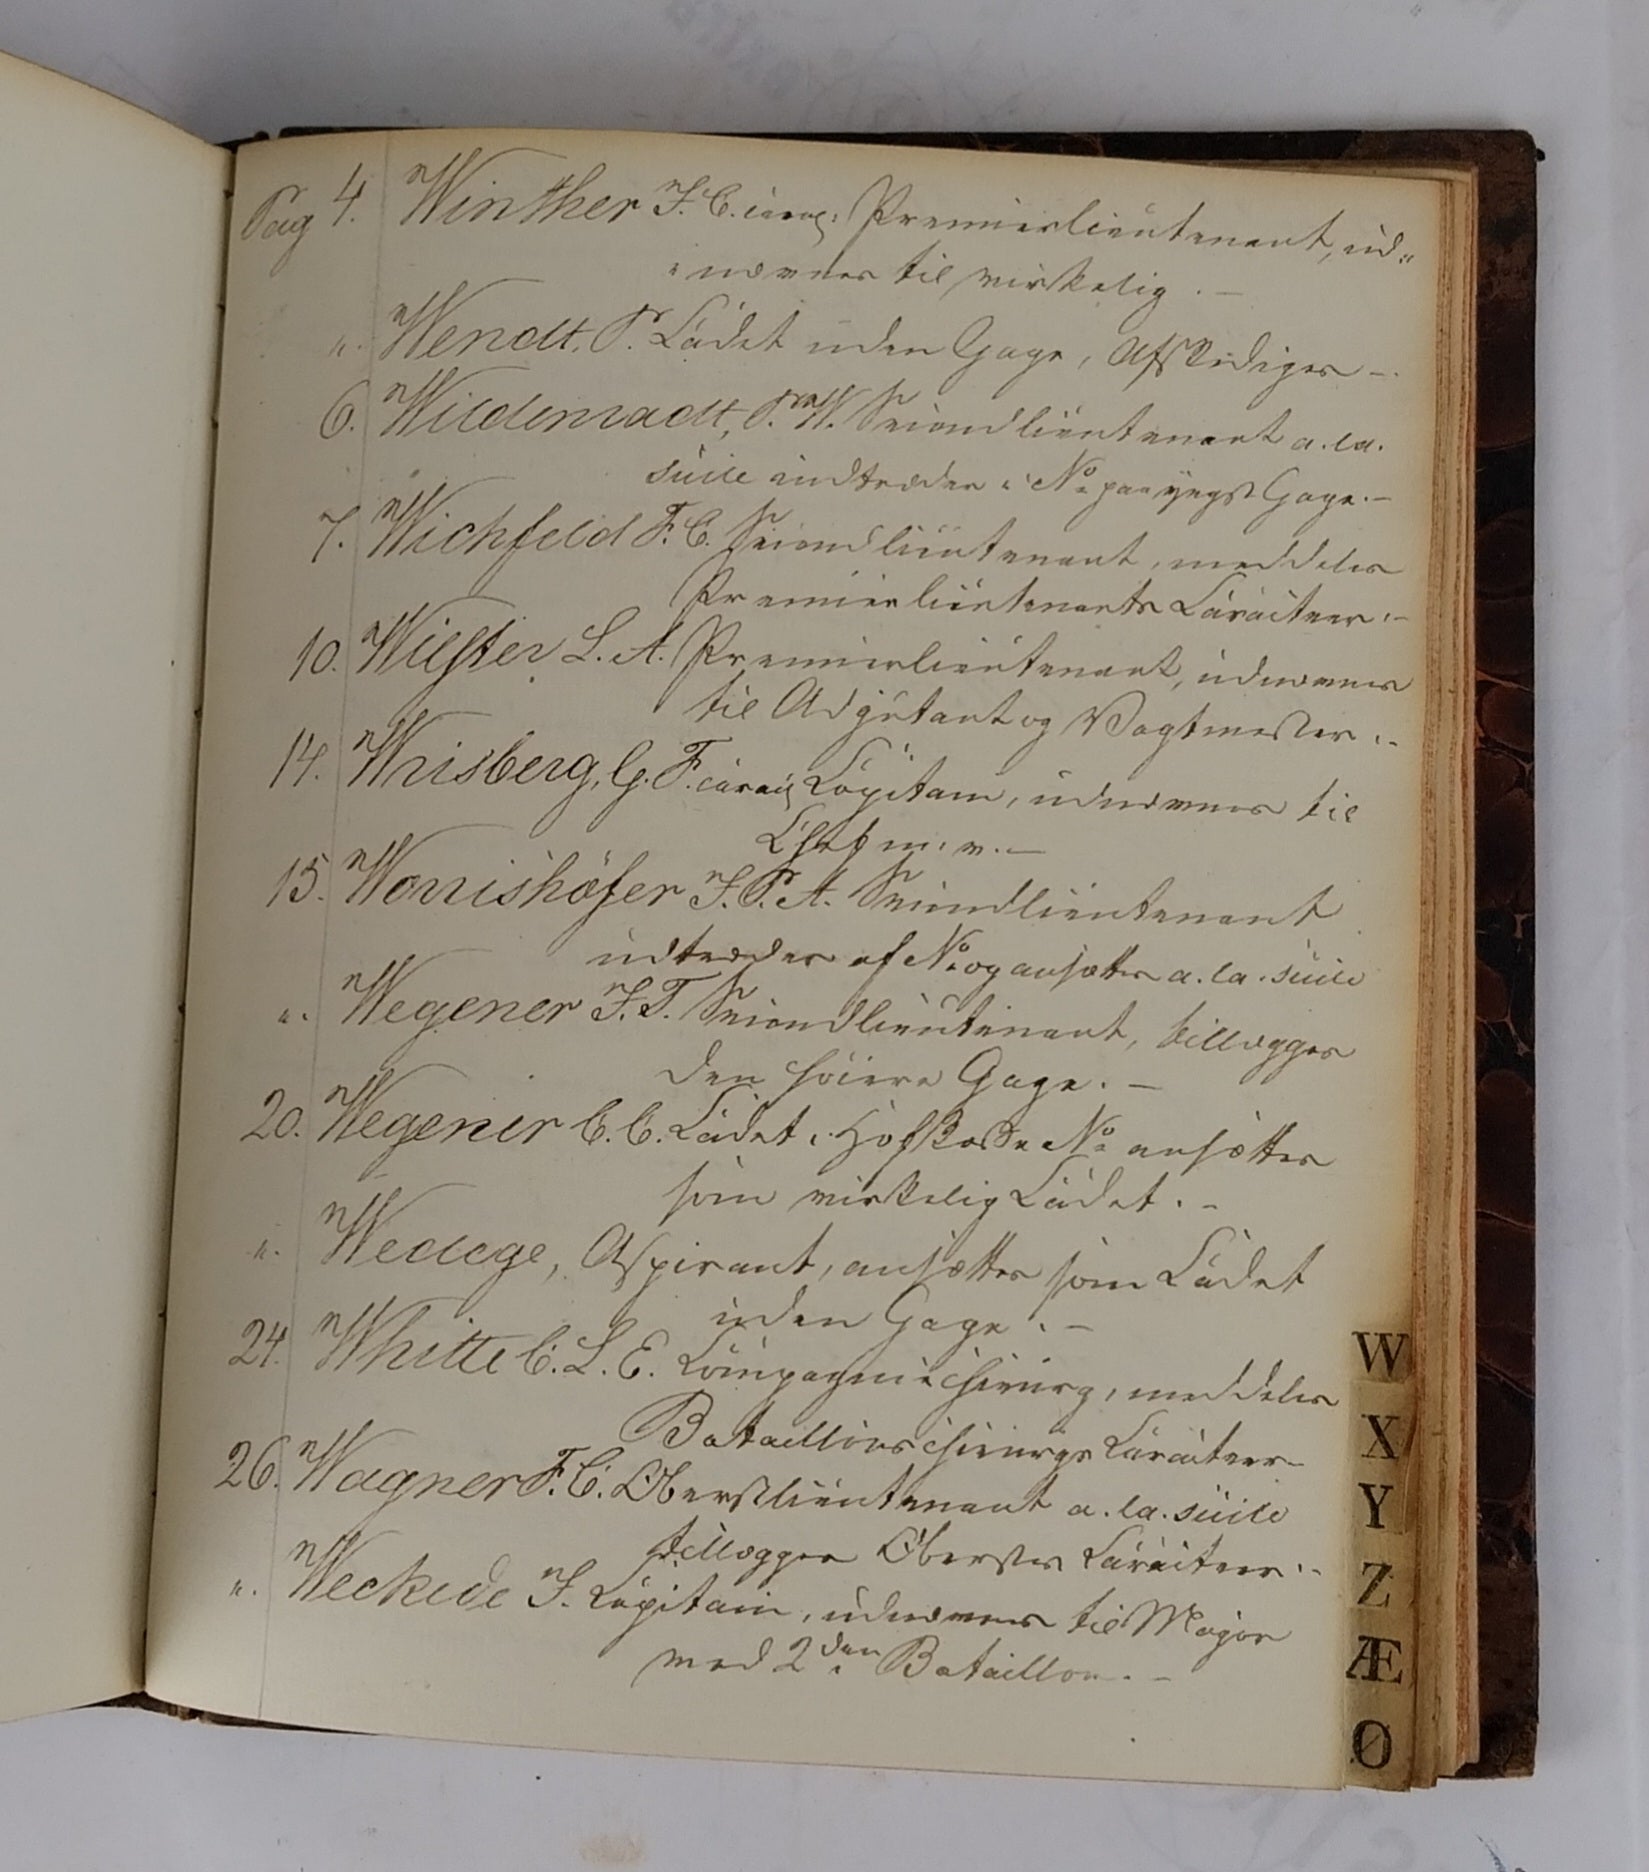 Pag 4. Winther F. C. carac: Premierlieutenant, ud-
nævnes til virkelig. –
". Wendt, P. Cadet uden Gage, Afskediges –.
6. Wildenradt, P. W. Secondlieutenant a. la.
suite indtræder i No paa yngst Gage. –
7. Wichfeld F. C. Secondlieutenant, meddeles
Premierlieutenants Caracteer. –
10. Wilster L. A. Premierlieutenant, udnævnes
til Adjutant og Vagtmester. –
14. Wrisberg, G. F. carac Capitain, udnævnes til
Chef m. v. –
15. Worrishöfer F. P. A. Secondlieutenant
udtræder af No og ansættes a. la. suite
". Wegener F. T. Secondlieutenant, tillægges
den höiere Gage. –
20. Wegener C. C. Cadet i No ansættes
som virkelig Cadet. –
". Wedege, Aspirant, ansættes som Cadet
uden Gage. –
24. Whitte C. L. E. Compagnichirurg, meddeles
Bataillonschirurgs Caracteer –
26. Wagner F. C. Oberstlieutenant a. la. suite
tillægges Obersts Caracteer. –
". Weckede F. Capitain, udnævnes til Major
ved 2den Bataillon. –
W
X
Y
Z
Æ
Ø